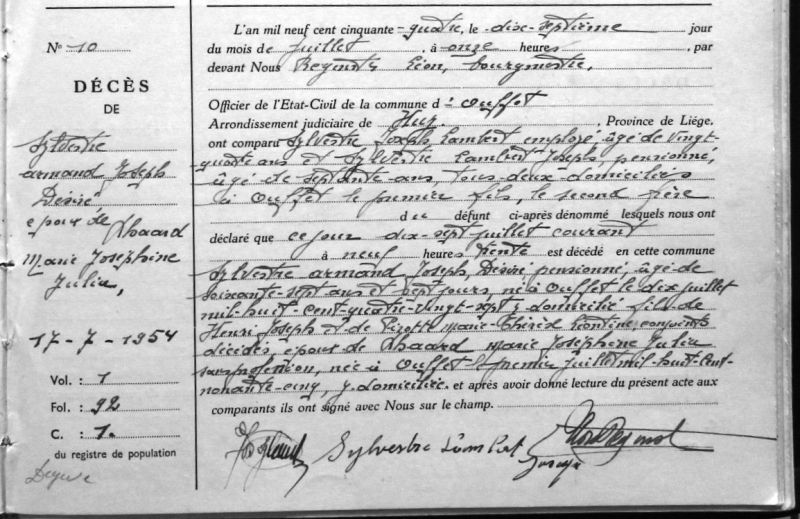 N° 10
DÉCÈS
DE
Sylvestre
Armand Joseph
Désiré
époux de
Marie Josephine
Julia,
17-7-1954
Vol. : 1
Fol. : 92
C. : 1.
du registre de population
L'an mil neuf cent cinquante-quatre, le dix-septième jour
du mois de juillet, à onze heures, par
devant Nous Léon, bourgmestre,
Officier de l'Etat-Civil de la commune d' Ouffet
Arrondissement judiciaire de Huy, Province de Liége,
ont comparu Sylvestre Joseph Lambert employé âgé de vingt-
quatre ans et Sylvestre Lambert Joseph, pensionné,
âgé de septante ans, tous deux domiciliés
à Ouffet le premier fils, le second frère
du défunt ci-après dénommé lesquels nous ont
déclaré que ce jour dix-sept juillet courant
à neuf heures trente est décédé en cette commune
Sylvestre Armand Joseph, Désiré, pensionné, âgé de
soixante-sept ans et sept jours, né à Ouffet le dix juillet
mil huit cent quatre-vingt-sept y domicilié fils de
Henri Joseph et de Marie Thérèse conjoints
décédés, époux de Marie Josephine Julia
sans profession, née à Ouffet le premier juillet mil-huit-cent-
nonante-cinq, y domiciliée. et après avoir donné lecture du présent acte aux
comparants ils ont signé avec Nous sur le champ.
Sylvestre Lambert